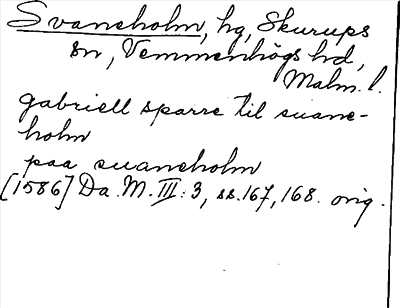 Svaneholm, hg, Skurups
sn, Vemmenhögs hd,
Malm. l.
gabriell sparre til suane-
holm
paa suaneholm
[1586] Da. M. III: 3, ss. 167, 168. orig.